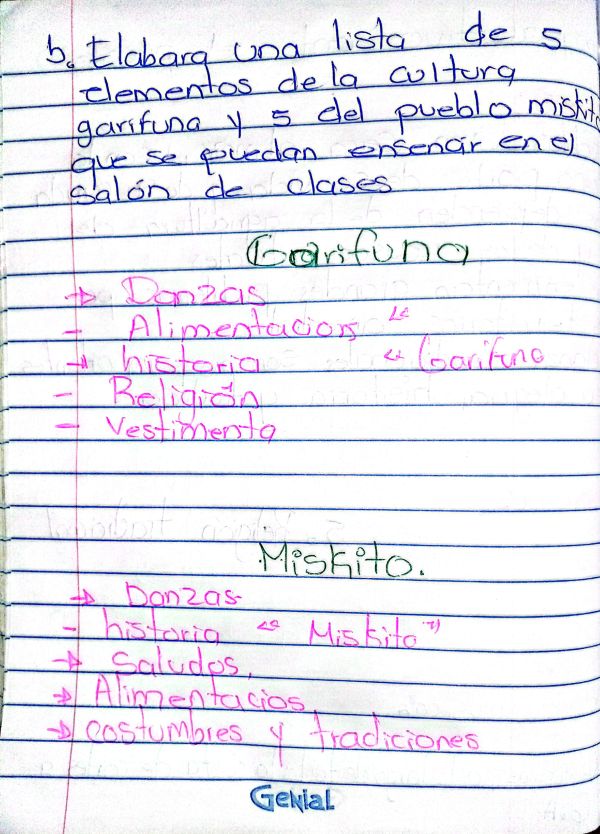 b. Elabara una lista de 5
elementos de la cultura
garifuna y 5 del pueblo miskito
que se puedan ensenar en el
Salón de clases
Garifuna
→ Danzas
- Alimentacion "
→ historia " Garifuna
- Religión
- Vestimenta
Miskito.
→ Danzas
- historia " Miskito"
→ Saludos,
→ Alimentacios
→ costumbres y tradiciones
GeNiaL